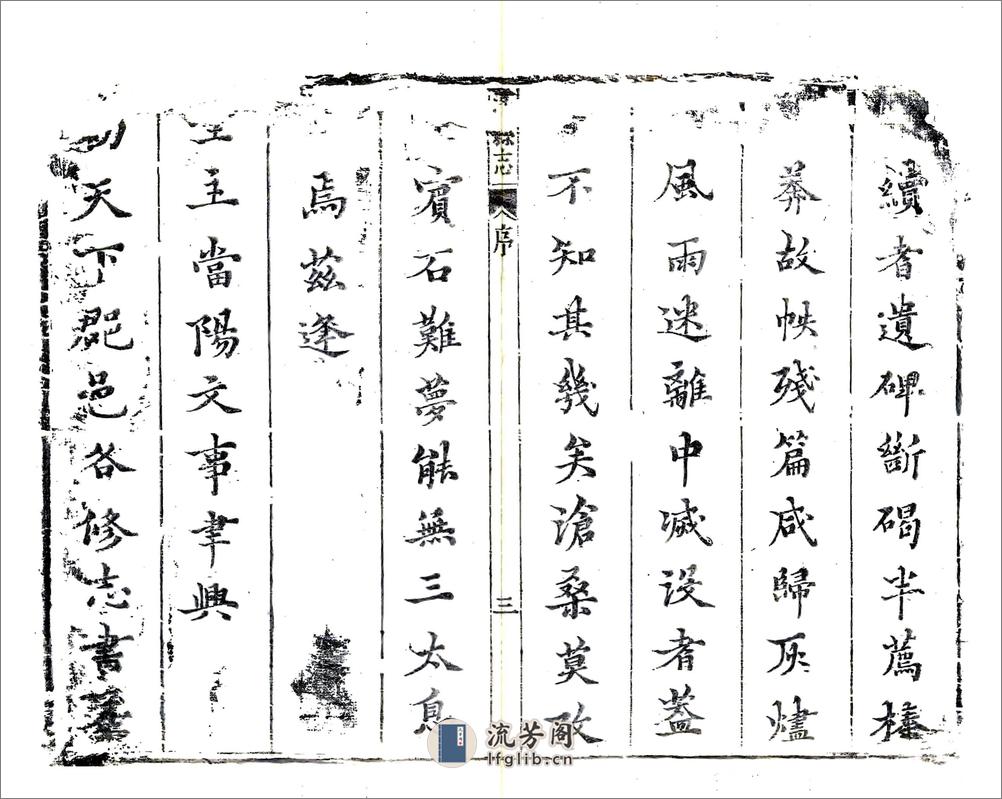 續者遺碑斷碣半薦榛
莽故帙殘篇咸歸灰燼
風雨迷離中滅没者蓋
不知其幾矣滄桑莫攷
志 序 三
賔石難夢能無三太息
焉茲逢
主當陽文事聿興
天下郡邑各修志書
流芳阁
lfglib.cn